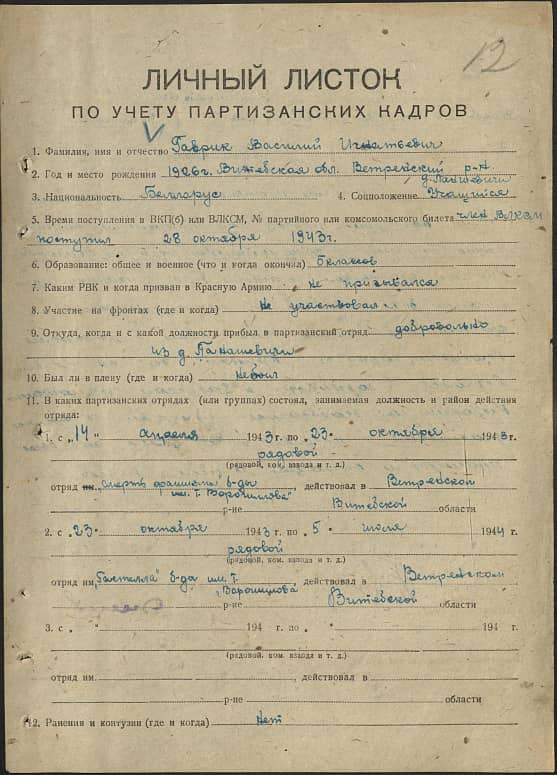 12
ЛИЧНЫЙ ЛИСТОК
ПО УЧЕТУ ПАРТИЗАНСКИХ КАДРОВ
1. Фамилия, имя и отчество Гаврик Василий Игнатьевич
2. Год и место рождения 1926 г. Витебская обл. Ветренский р-н.
д. Панашевичи
3. Национальность Белларус 4. Соцположение Учащийся
5. Время поступления в ВКП(б) или ВЛКСМ, № партийного или комсомольского билета член ВЛКСМ
поступил 28 октября 1943 г.
6. Образование: общее и военное (что и когда окончил) 6 классов
7. Каким РВК и когда призван в Красную Армию не призывался
8. Участие на фронтах (где и когда) не участвовал
9. Откуда, когда и с какой должности прибыл в партизанский отряд добровольно
из д. Панашевичи
10. Был ли в плену (где и когда) небыл
11. В каких партизанских отрядах (или группах) состоял, занимаемая должность и район действия
отряда:
1. с „14" апреля 1943 г. по „23" октября 1943 г.
рядовой
(рядовой, ком. взвода и т. д.)
отряд им. „Смерть фашизму" б-ды
им. т. Ворошилова", действовал в Ветренской
р-не Витебской области
2. с „23" октября 1943 г. по „5" июля 1944 г.
рядовой
(рядовой, ком. взвода и т. д.)
отряд им. „Гастелла" б-да им. т.
„Ворошилова", действовал в Ветренском
р-не Витебской области
3. с „ " 194 г. по „ " 194 г.
(рядовой, ком. взвода и т. д.)
отряд им., действовал в
р-не области
12. Ранения и контузии (где и когда) нет